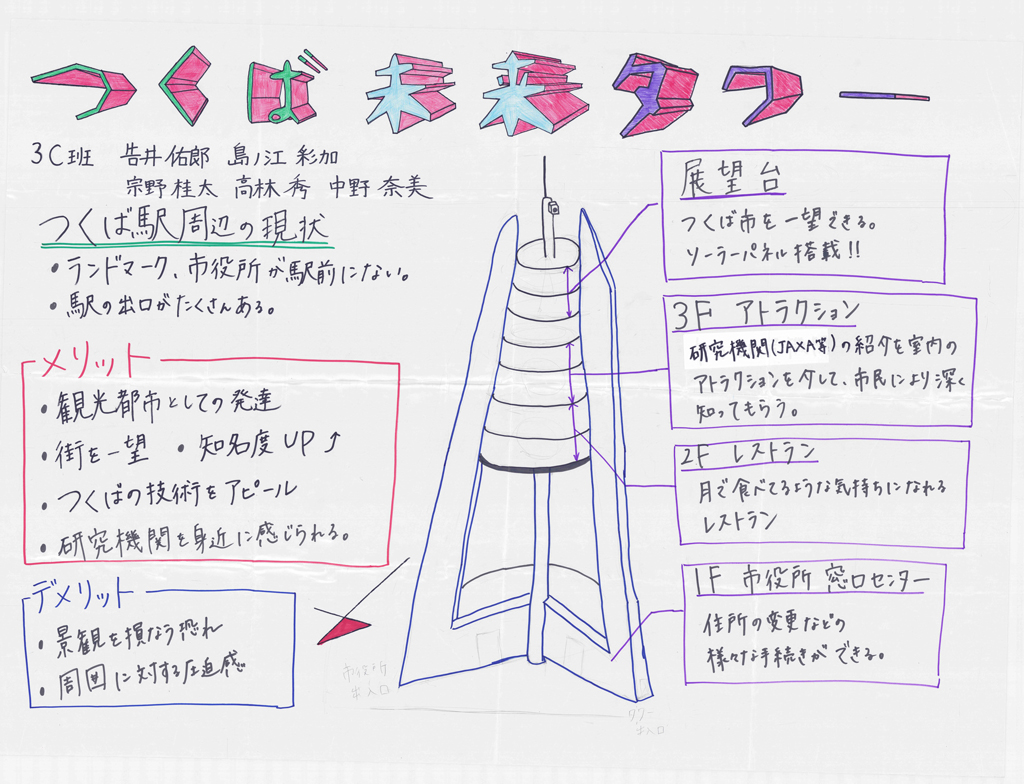 つくば未来タワー
3C班 告井佑郎 島ノ江彩加
宗野桂太 高林秀 中野奈美
つくば駅周辺の現状
・ランドマーク、市役所が駅前にない。
・駅の出口がたくさんある。
メリット
・観光都市としての発達
・街を一望 ・知名度UP↑
・つくばの技術をアピール
・研究機関を身近に感じられる。
デメリット
・景観を損なう恐れ
・周囲に対する圧迫感
展望台
つくば市を一望できる。
ソーラーパネル搭載!!
3F アトラクション
研究機関(JAXA等)の紹介を室内の
アトラクションを介して、市民により深く
知ってもらう。
2F レストラン
月で食べてるような気持ちになれる
レストラン
1F 市役所 窓口センター
住所の変更などの
様々な手続きができる。
市役所
出入口
タワー
出入口